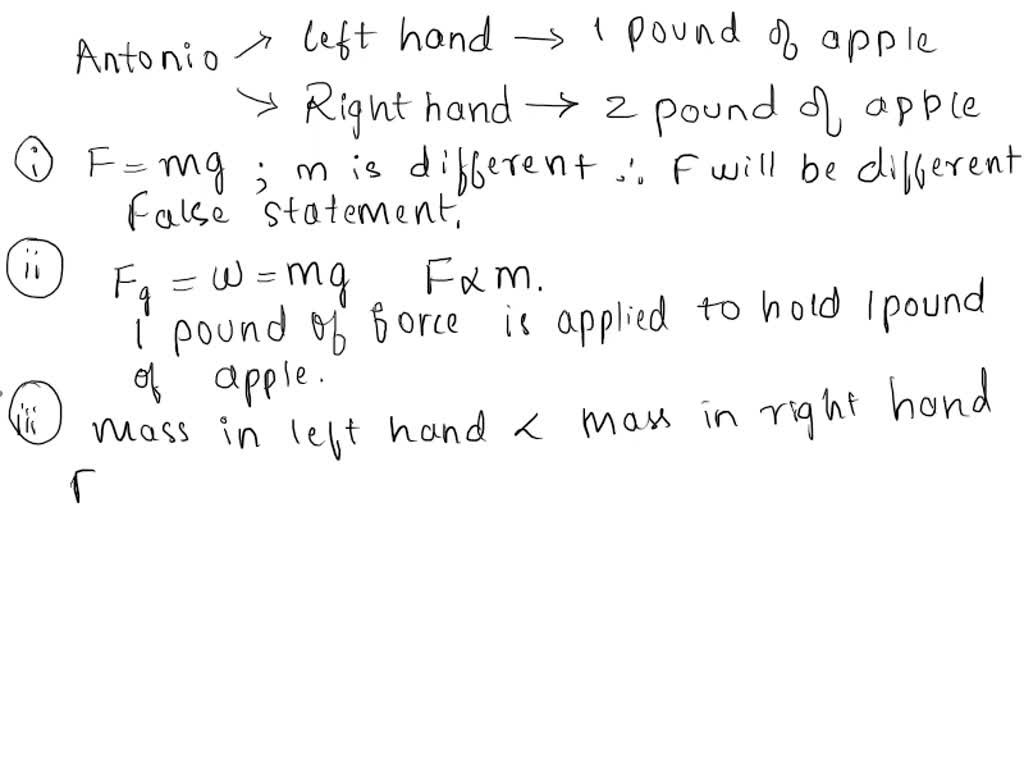 Antonio → left hand → 1 pound of apple
→ Right hand → 2 pound of apple
(i) F = mg ; m is different ∴ F will be different
False statement.
(ii) Fg = w = mg F ∝ m.
1 pound of force is applied to hold 1 pound
of apple.
(iii) Mass in left hand < mass in right hand